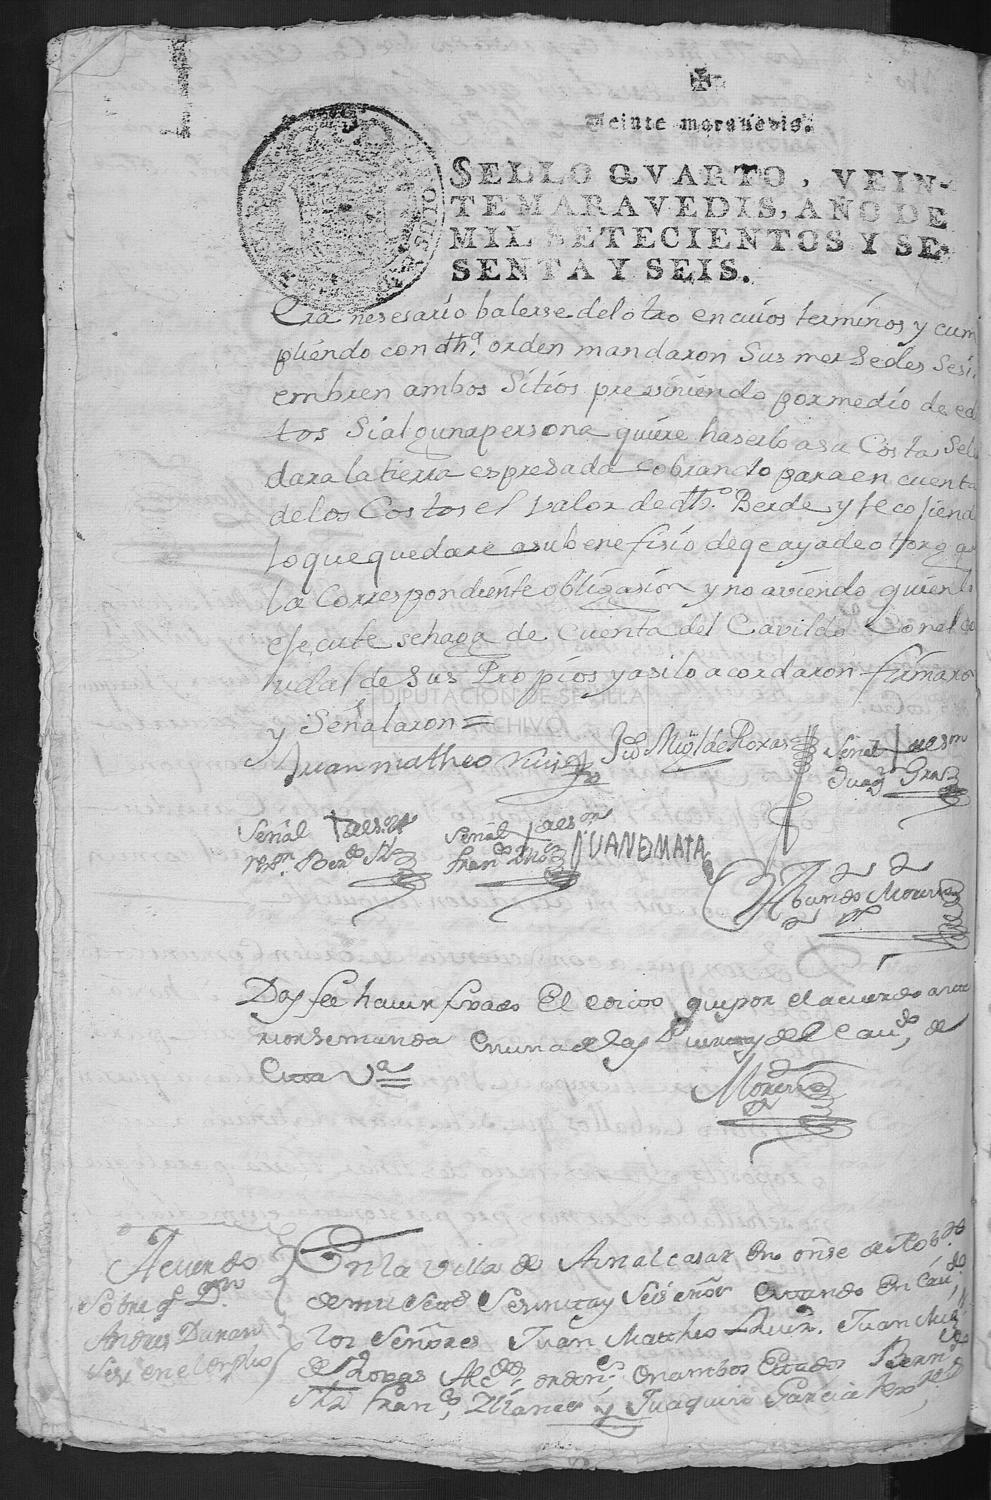 Veinte marauedis.
SELLO QVARTO, VEIN-
TE MARAVEDIS, AÑO DE
MIL SETECIENTOS Y SE-
SENTA Y SEIS.
Era nesesario balerse del otro en cuios terminos y cum
pliendo con dhª. orden mandaron Sus mersedes Se si
embren ambos Sitios previniendo por medio de edi
tos Si alguna persona quiere haserlo asu Costa Sele
dara la tierra espresada cobrando para en cuenta
delos Costos el valor de dhº. Berde y fecojiend
lo que quedare asu benefisio de qe aya de otorgar
la Correspondiente obligasion y no aviendo quien lo
ejecute se haga de Cuenta del Cavildo Con el ca
udal de Sus Propios y asilo acordaron firmaron
y Señalaron =
DIPUTACION DE SEVILLA
ARCHIVO
Juan matheo Juº Migl de Roxas Señal + de Sn
Juaqn Grª
Señal + de Sn Señal + de Sn JUAN D MATA
Bernº franco
Moreno
Doy fee haver fixado El edicto que por el acuerdo ante
rior se manda en una de las Puertas del Cavdo, de
Esta Vª =
Moreno
Acuerdo
Sobre qe Dn
Andres Duran
Sese en el empleo
En la Villa de Aznalcasar en onse de Nobre
de mil Setts Sesenta y Seis Estando en Cavdo,
los Señores Juan Matheo Juan Migl
de Roxas Alcdes, ordins, en ambos Estados Berndo
Franco, y Juaquin Garcia